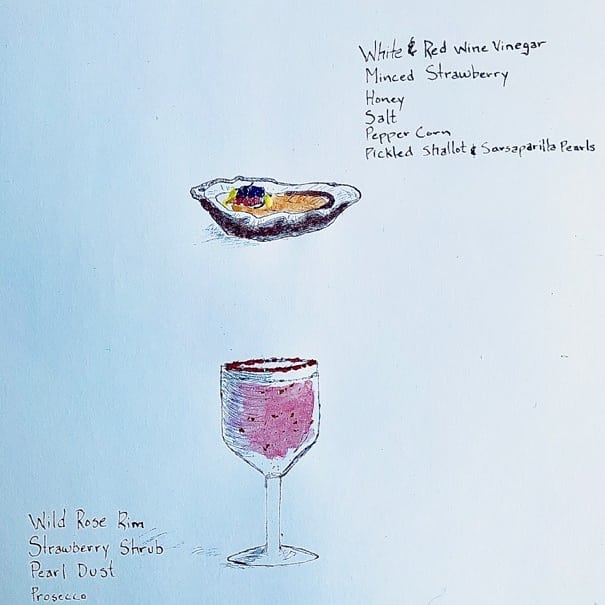 White & Red Wine Vinegar
Minced Strawberry
Honey
Salt
Pepper Corn
Pickled Shallot & Sarsaparilla Pearls
Wild Rose Rim
Strawberry Shrub
Pearl Dust
Prosecco